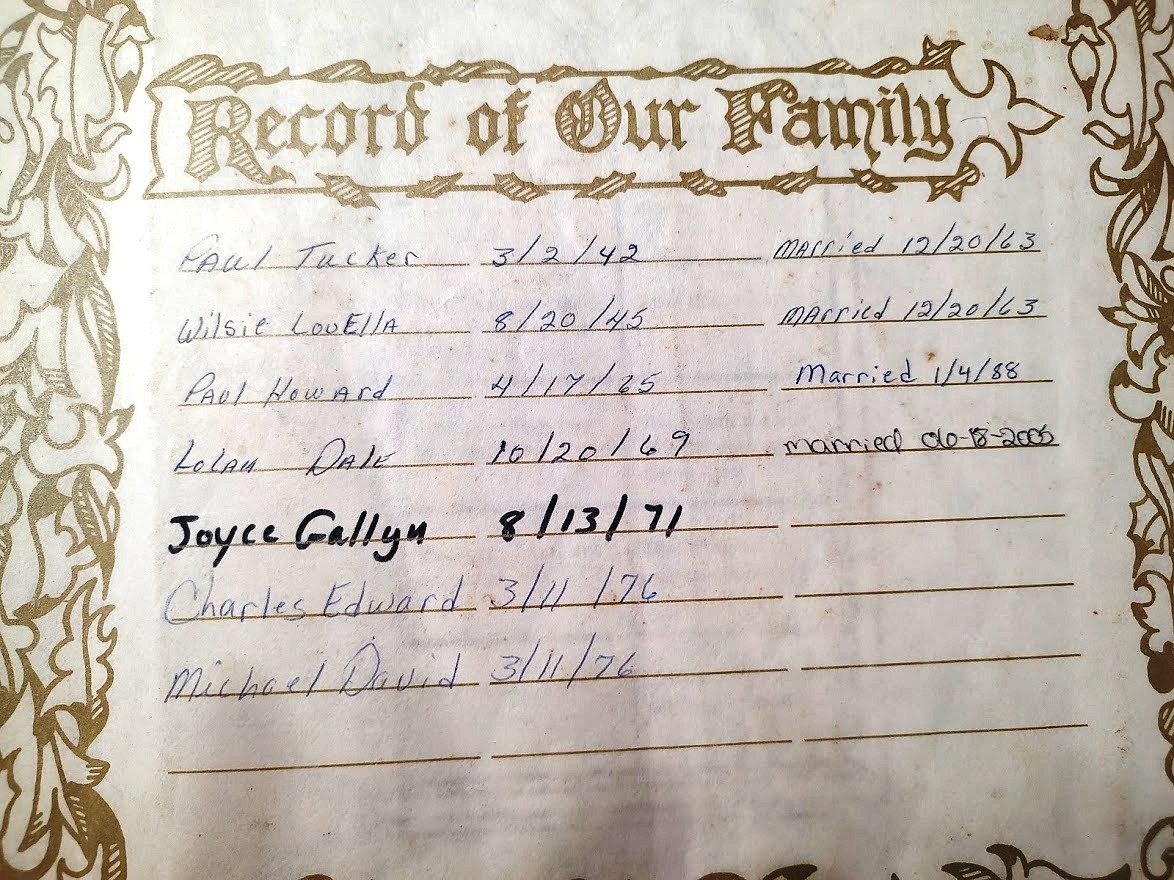 Record of Our Family
Paul Tucker 3/2/42 Married 12/20/63
Wilsie LouElla 8/20/45 Married 12/20/63
Paul Howard 4/17/65 Married 1/4/88
Dale 10/20/69 married 06-18-2005
Joyce Gallyn 8/13/71
Charles Edward 3/11/76
Michael David 3/11/76